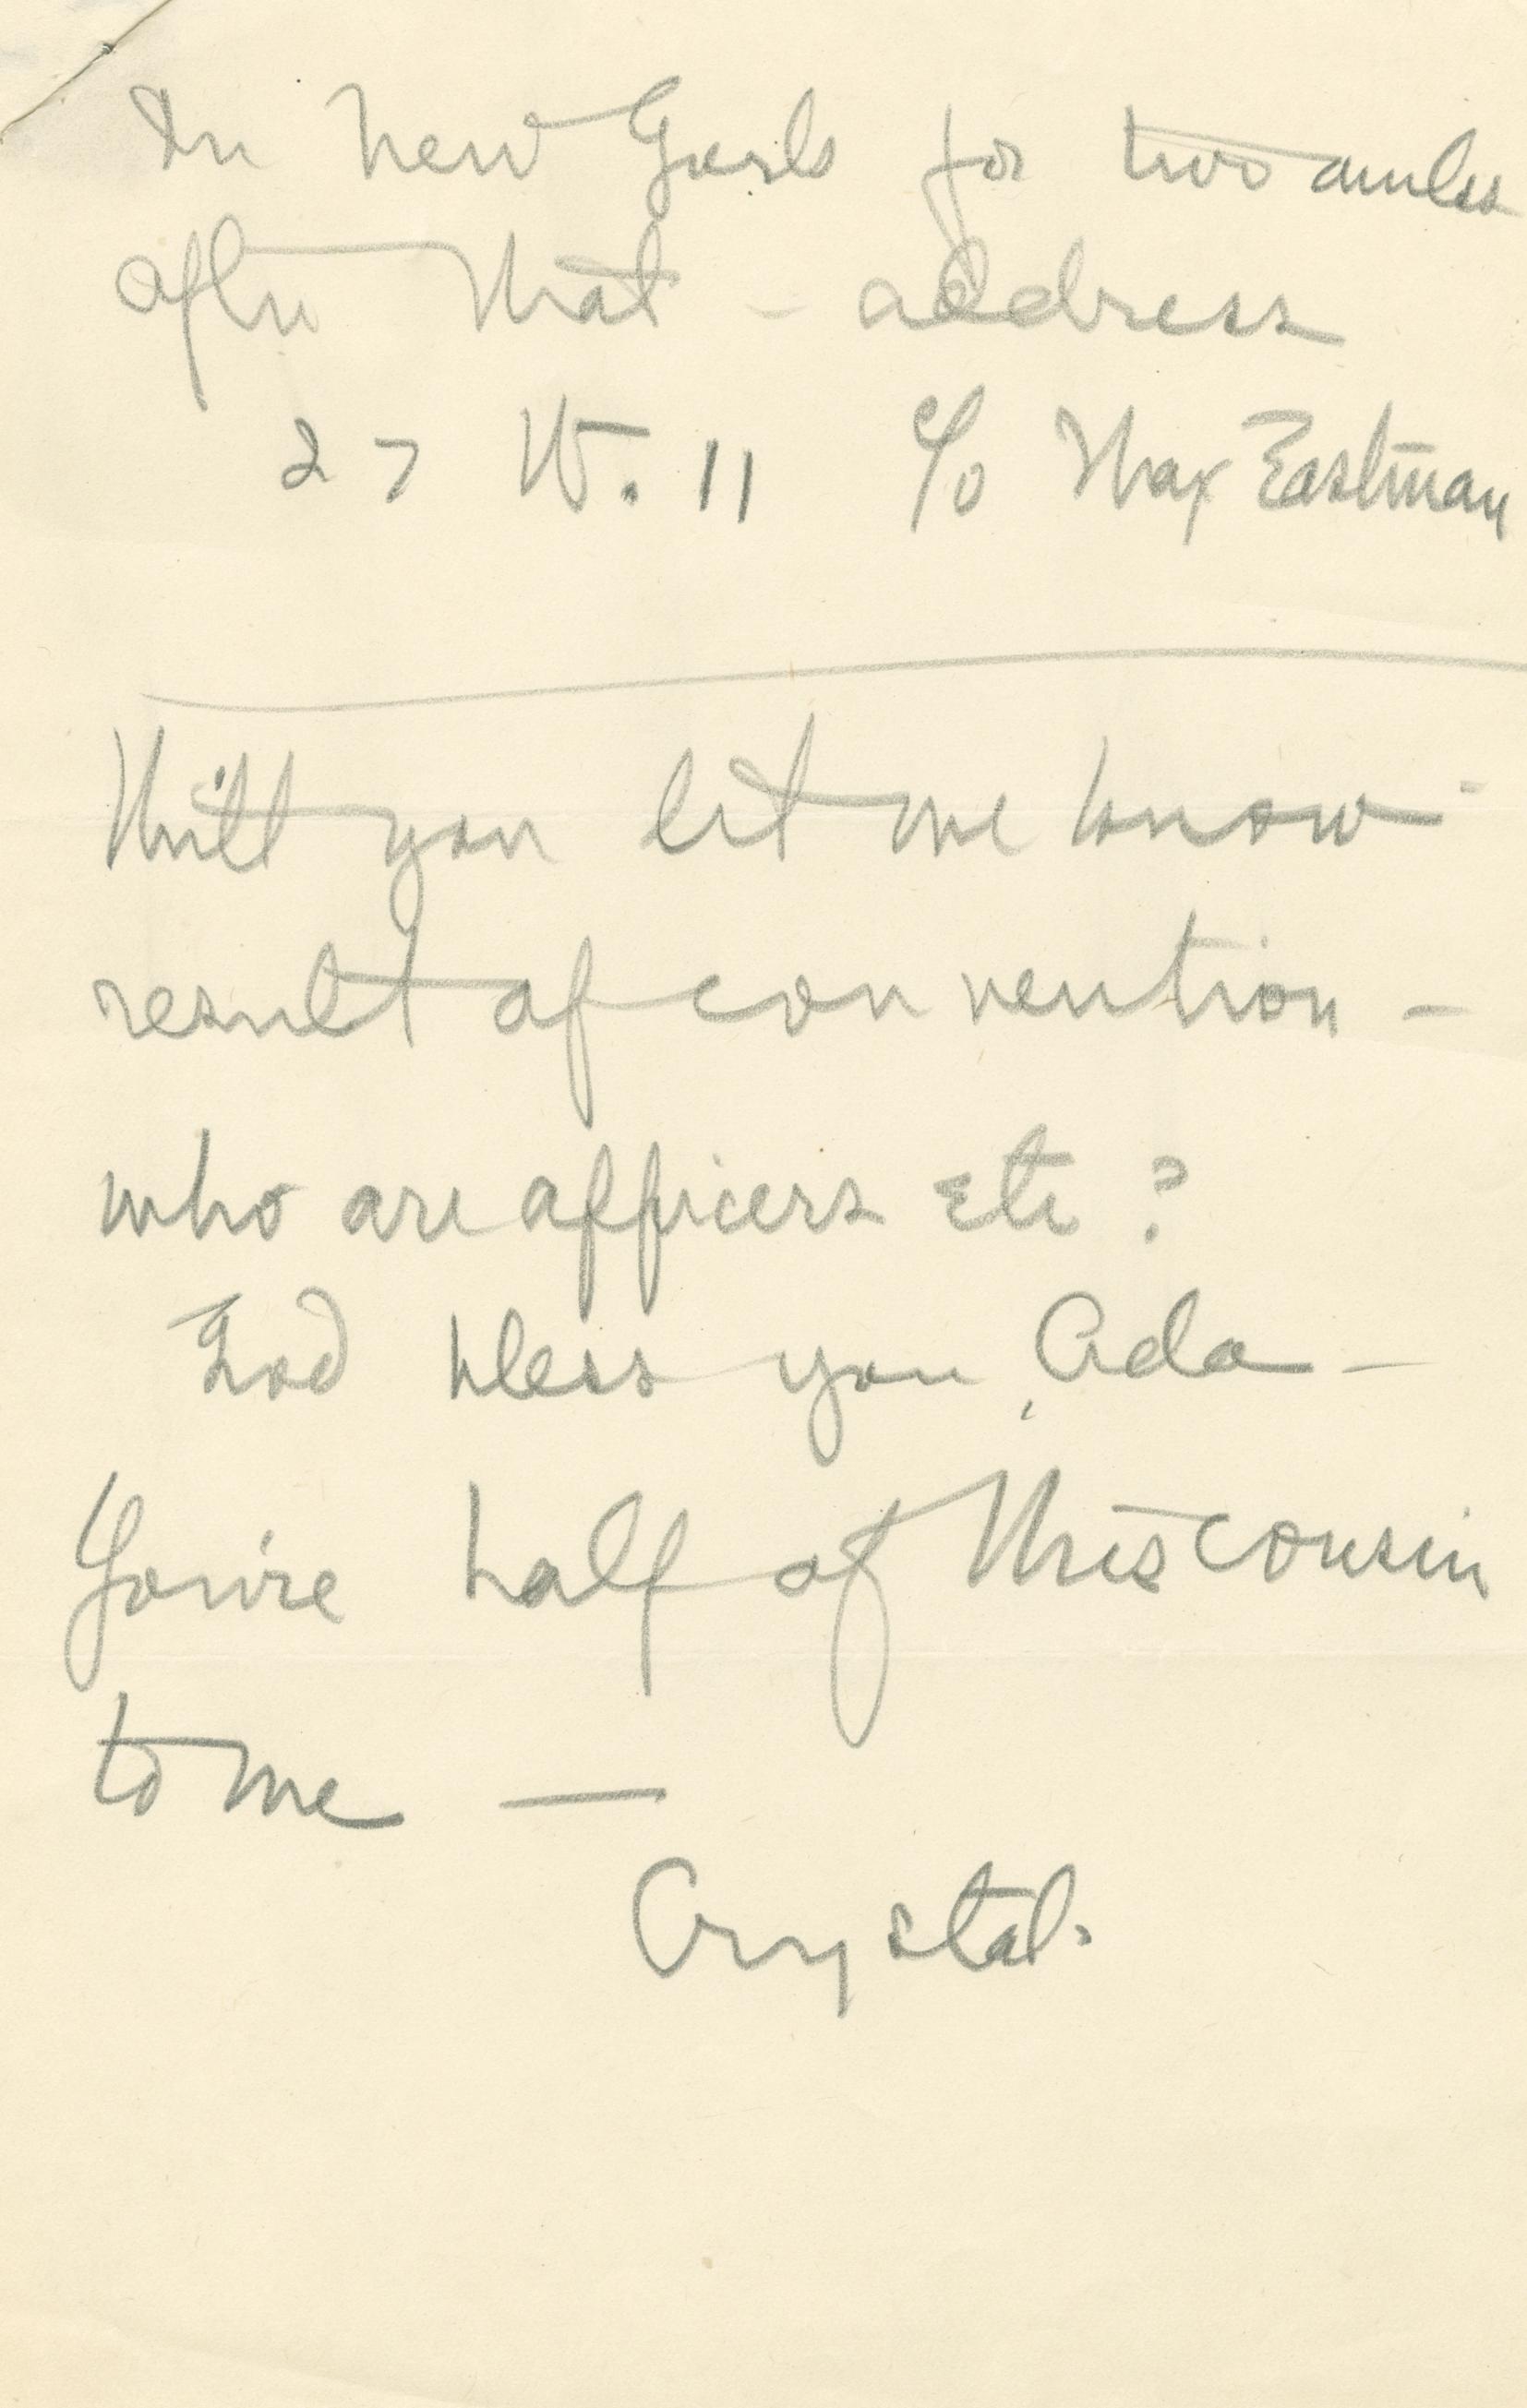 In New York for two weeks
after that - address
27 W. 11 c/o Max Eastman
Will you let me know -
result of convention -
who are officers etc?
God bless you, Ada -
You're half of Wisconsin
to me —
Crystal.